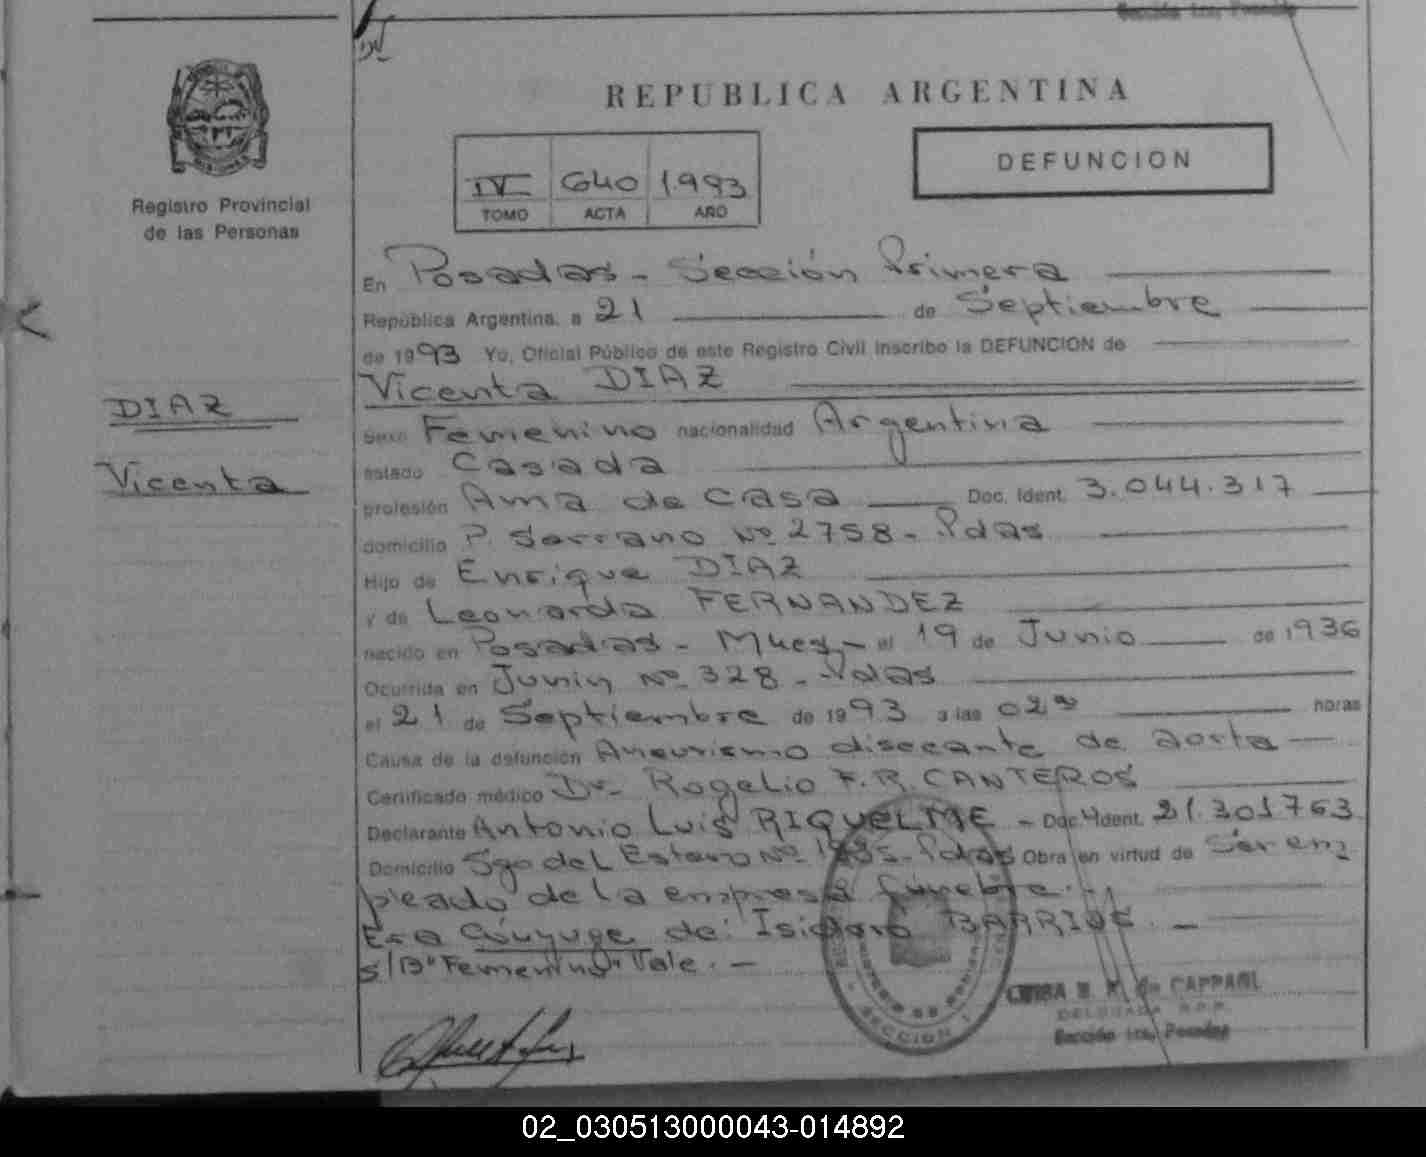 Sección 1ra, Posadas
REPUBLICA ARGENTINA
DEFUNCION
IV 640 1.993
TOMO ACTA AÑO
Registro Provincial
de las Personas
DIAZ
Vicenta
En Posadas - Sección Primera
República Argentina, a 21 de Septiembre
de 1993 Yo, Oficial Público de este Registro Civil inscribo la DEFUNCION de
Vicenta DIAZ
Sexo Femenino nacionalidad Argentina
estado Casada
profesión Ama de casa Doc. Ident. 3.044.317
domicilio P. Serrano Nº 2758 - Pdas
Hijo de Enrique DIAZ
y de Leonarda FERNANDEZ
nacido en Posadas - Mnes - el 19 de Junio de 1936
Ocurrida en Junin Nº 328 - Pdas
el 21 de Septiembre de 1993 a las 02 horas
Causa de la defunción Aneurismo disecante de aorta
Certificado médico Dr. Rogelio F.R. CANTEROS
Declarante Antonio Luis RIQUELME - Doc. Ident. 21.301.763
Domicilio Sgo del Estero Nº - Pdas Obra en virtud de Ser em
pleado de la empresa fúnebre. -
Era Cónyuge de: Isidoro BARRIOS. -
S/B "Femenino" Vale. -
SECCION 1
de CAPPARI
DELEGADA R.P.P.
Sección 1ra, Posadas
02_030513000043-014892